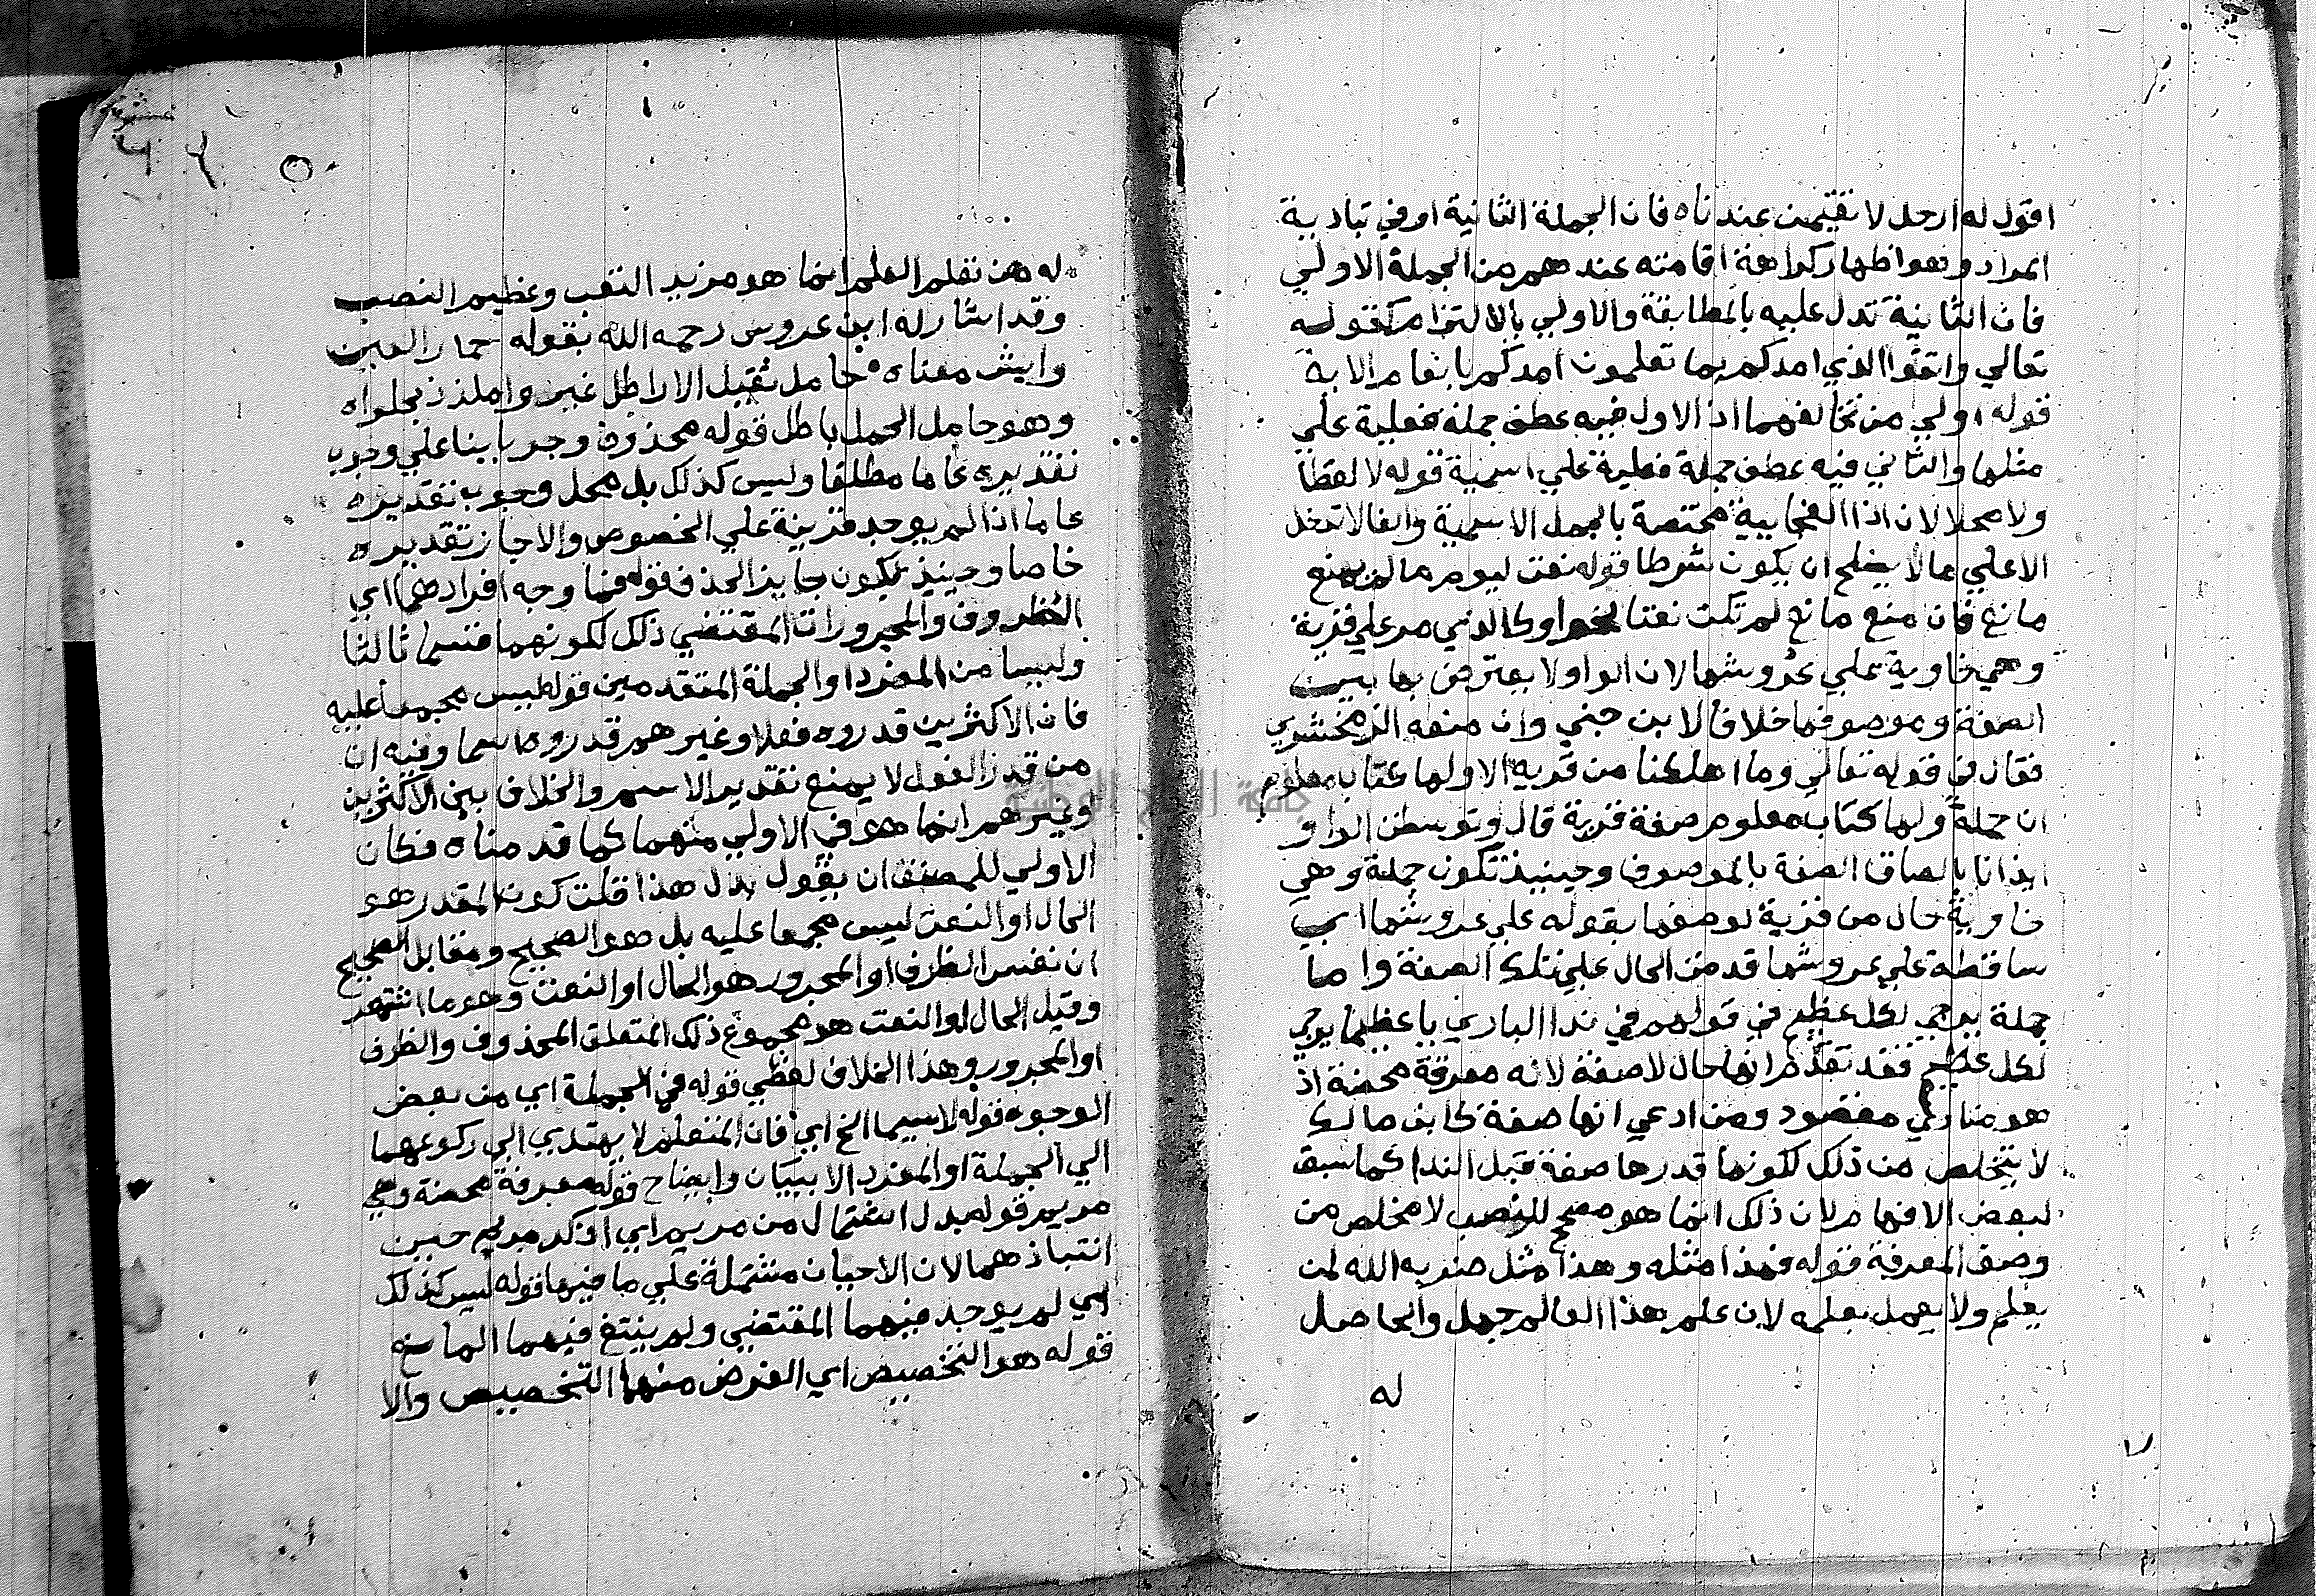 اقول له ارحل لا تقيمن عندناه فان الجملة الثانية اوفي بتادية
المراد وهو اظهار كراهة اقامته عندهم من الجملة الاولي
فان الثانية تدل عليه بالمطابقة والاولي بالالتزام كقوله
تعالي واتقوا الذي امدكم بما تعلمون امدكم بانعام الاية
قوله اولي من تخالفهما اذ الاول فيه عطف جملة فعلية علي
مثلها والثاني فيه عطف جملة فعلية علي اسمية قوله لا لفظا
ولا محلا لان اذا الفجايية مختصة بالجمل الاسمية والفا لا تدخل
الا علي ما لا يصلح ان يكون شرطا قوله نعت ليوم ما لم يمنع
مانع فان منع مانع لم تكن نعتا نحو او كالذي مر علي قرية
وهي خاوية علي عروشها لان الواو لا يعترض بها بين
الصفة وموصوفها خلافا لابن جني وان منعه الزمخشري
فقال في قوله تعالي وما اهلكنا من قرية الا ولها كتاب معلوم
ان جملة ولها كتاب معلوم صفة قرية قال وتوسطن الواو
ايذانا بالصاق الصفة بالموصوف وحينيذ تكون جملة وهي
خاوية حال من قرية لوصفها بقوله علي عروشها اي
ساقطة علي عروشها قدمت الحال علي تلك الصفة واما
جملة يرجي لكل عظيم في قولهم في ندا الباري يا عظيما يرجي
لكل عظيم فقد تقدم انها حال لا صفة لانه معرفة محضة اذ
هو منادي مقصود ومن ادعي انها صفة كابن مالك
لا يتخلص من ذلك لكونها قدرها صفة قبل الندا كما سبق
لبعض الافهام لان ذلك انما هو مصحح للنصب لا مخلص من
وصف المعرفة قوله فهذا مثله وهذا مثل ضربه الله لمن
يعلم ولا يعمل بعلمه لان علم هذا العالم جهل والحاصل
له
له من تعلم العلم انما هو مزيد التعب وعظيم النصب
وقد اشار له ابن عروس رحمه الله بقوله حمار العين
وايش معناه حامل ثقيل الاراطل غيروا ملذذ بحلواه
وهو حامل الحمل باطل قوله محذوف وجوبا بنا علي وجوب
تقديره عاما مطلقا وليس كذلك بل محل وجوب تقديره
عاما اذا لم يوجد قرينة علي الخصوص والا جاز تقديره
خاصا وحينيذ يكون جايز الحذف قوله فما وجه افرادهما اي
الظروف والمجرورات المقتضي ذلك لكونهما قسما ثالثا
وليسا من المفرد او الجملة المتقدمين قوله ليس مجمعا عليه
فان الاكثرين قدروه فعلا وغيرهم قدروه اسما وفيه ان
من قدر الفعل لا يمنع تقدير الاسم والخلاف بين الاكثرين
وغيرهم انما هو في الاولي منهما كما قدمناه فكان
الاولي للمصنف ان يقول بدل هذا قلت كون المقدر هو
الحال او النعت ليس مجمعا عليه بل هو الصحيح ومقابل الصحيح
ان نفس الظرف او المجرور هو الحال او النعت وهو ما اشتهر
وقيل الحال او النعت هو مجموع ذلك المتعلق المحذوف والظرف
او المجرور وهذا الخلاف لفظي قوله في الجملة اي من بعض
الوجوه قوله لاسيما الخ اي فان المتعلم لا يهتدي الي ركوعهما
الي الجملة او المفرد الا ببيان وايضاح قوله معرفة محضة وهي
مريم قوله بدل اشتمال من مريم اي اذكر مريم حين
انتباذهما لان الاحيان مشتملة علي ما فيها قوله ليس كذلك
اي لم يوجد فيهما المقتضي ولم ينتف فيهما المانع
قوله هو التخصيص اي الغرض منهما التخصيص والا